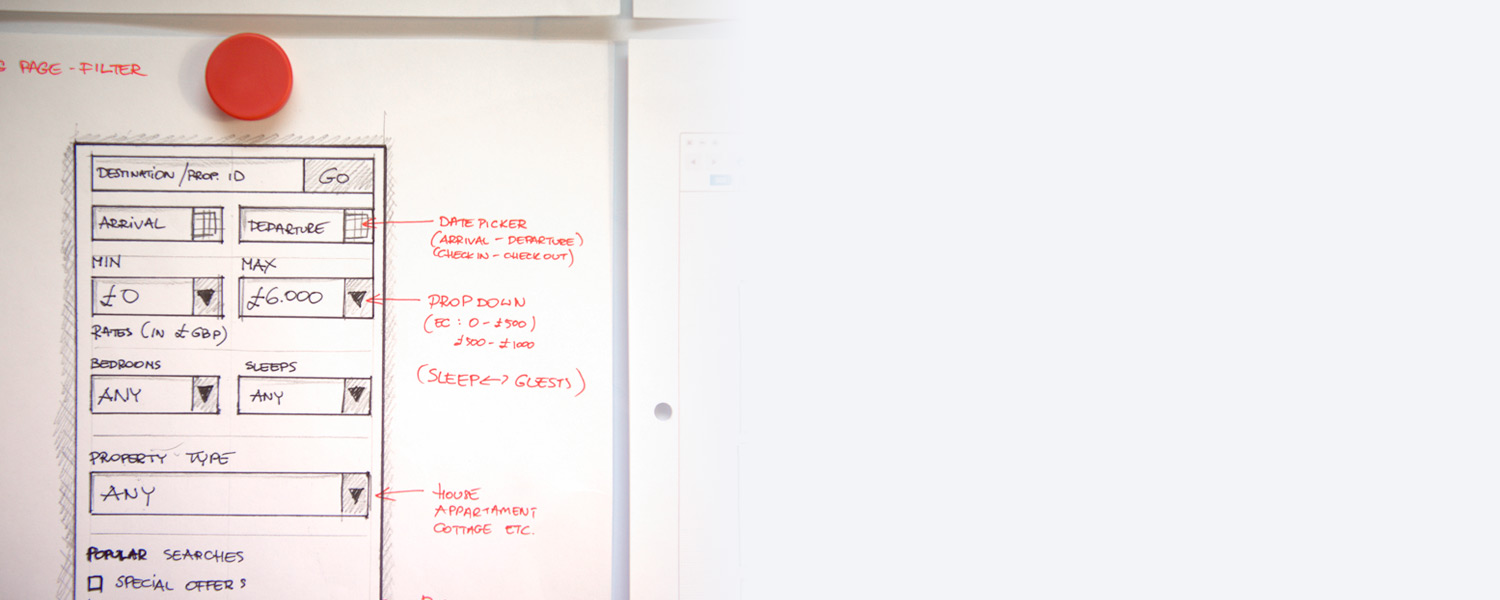 PAGE - FILTER
DESTINATION / PROP. ID GO
ARRIVAL DEPARTURE
DATE PICKER
(ARRIVAL - DEPARTURE)
(CHECK IN - CHECK OUT)
MIN MAX
£0 £6.000
DROP DOWN
(EC : 0 - £500)
£500 - £1000
RATES (IN £ GBP)
BEDROOMS SLEEPS
(SLEEP <-> GUESTS)
ANY ANY
PROPERTY TYPE
ANY
HOUSE
APPARTAMENT
COTTAGE ETC.
POPULAR SEARCHES
SPECIAL OFFERS